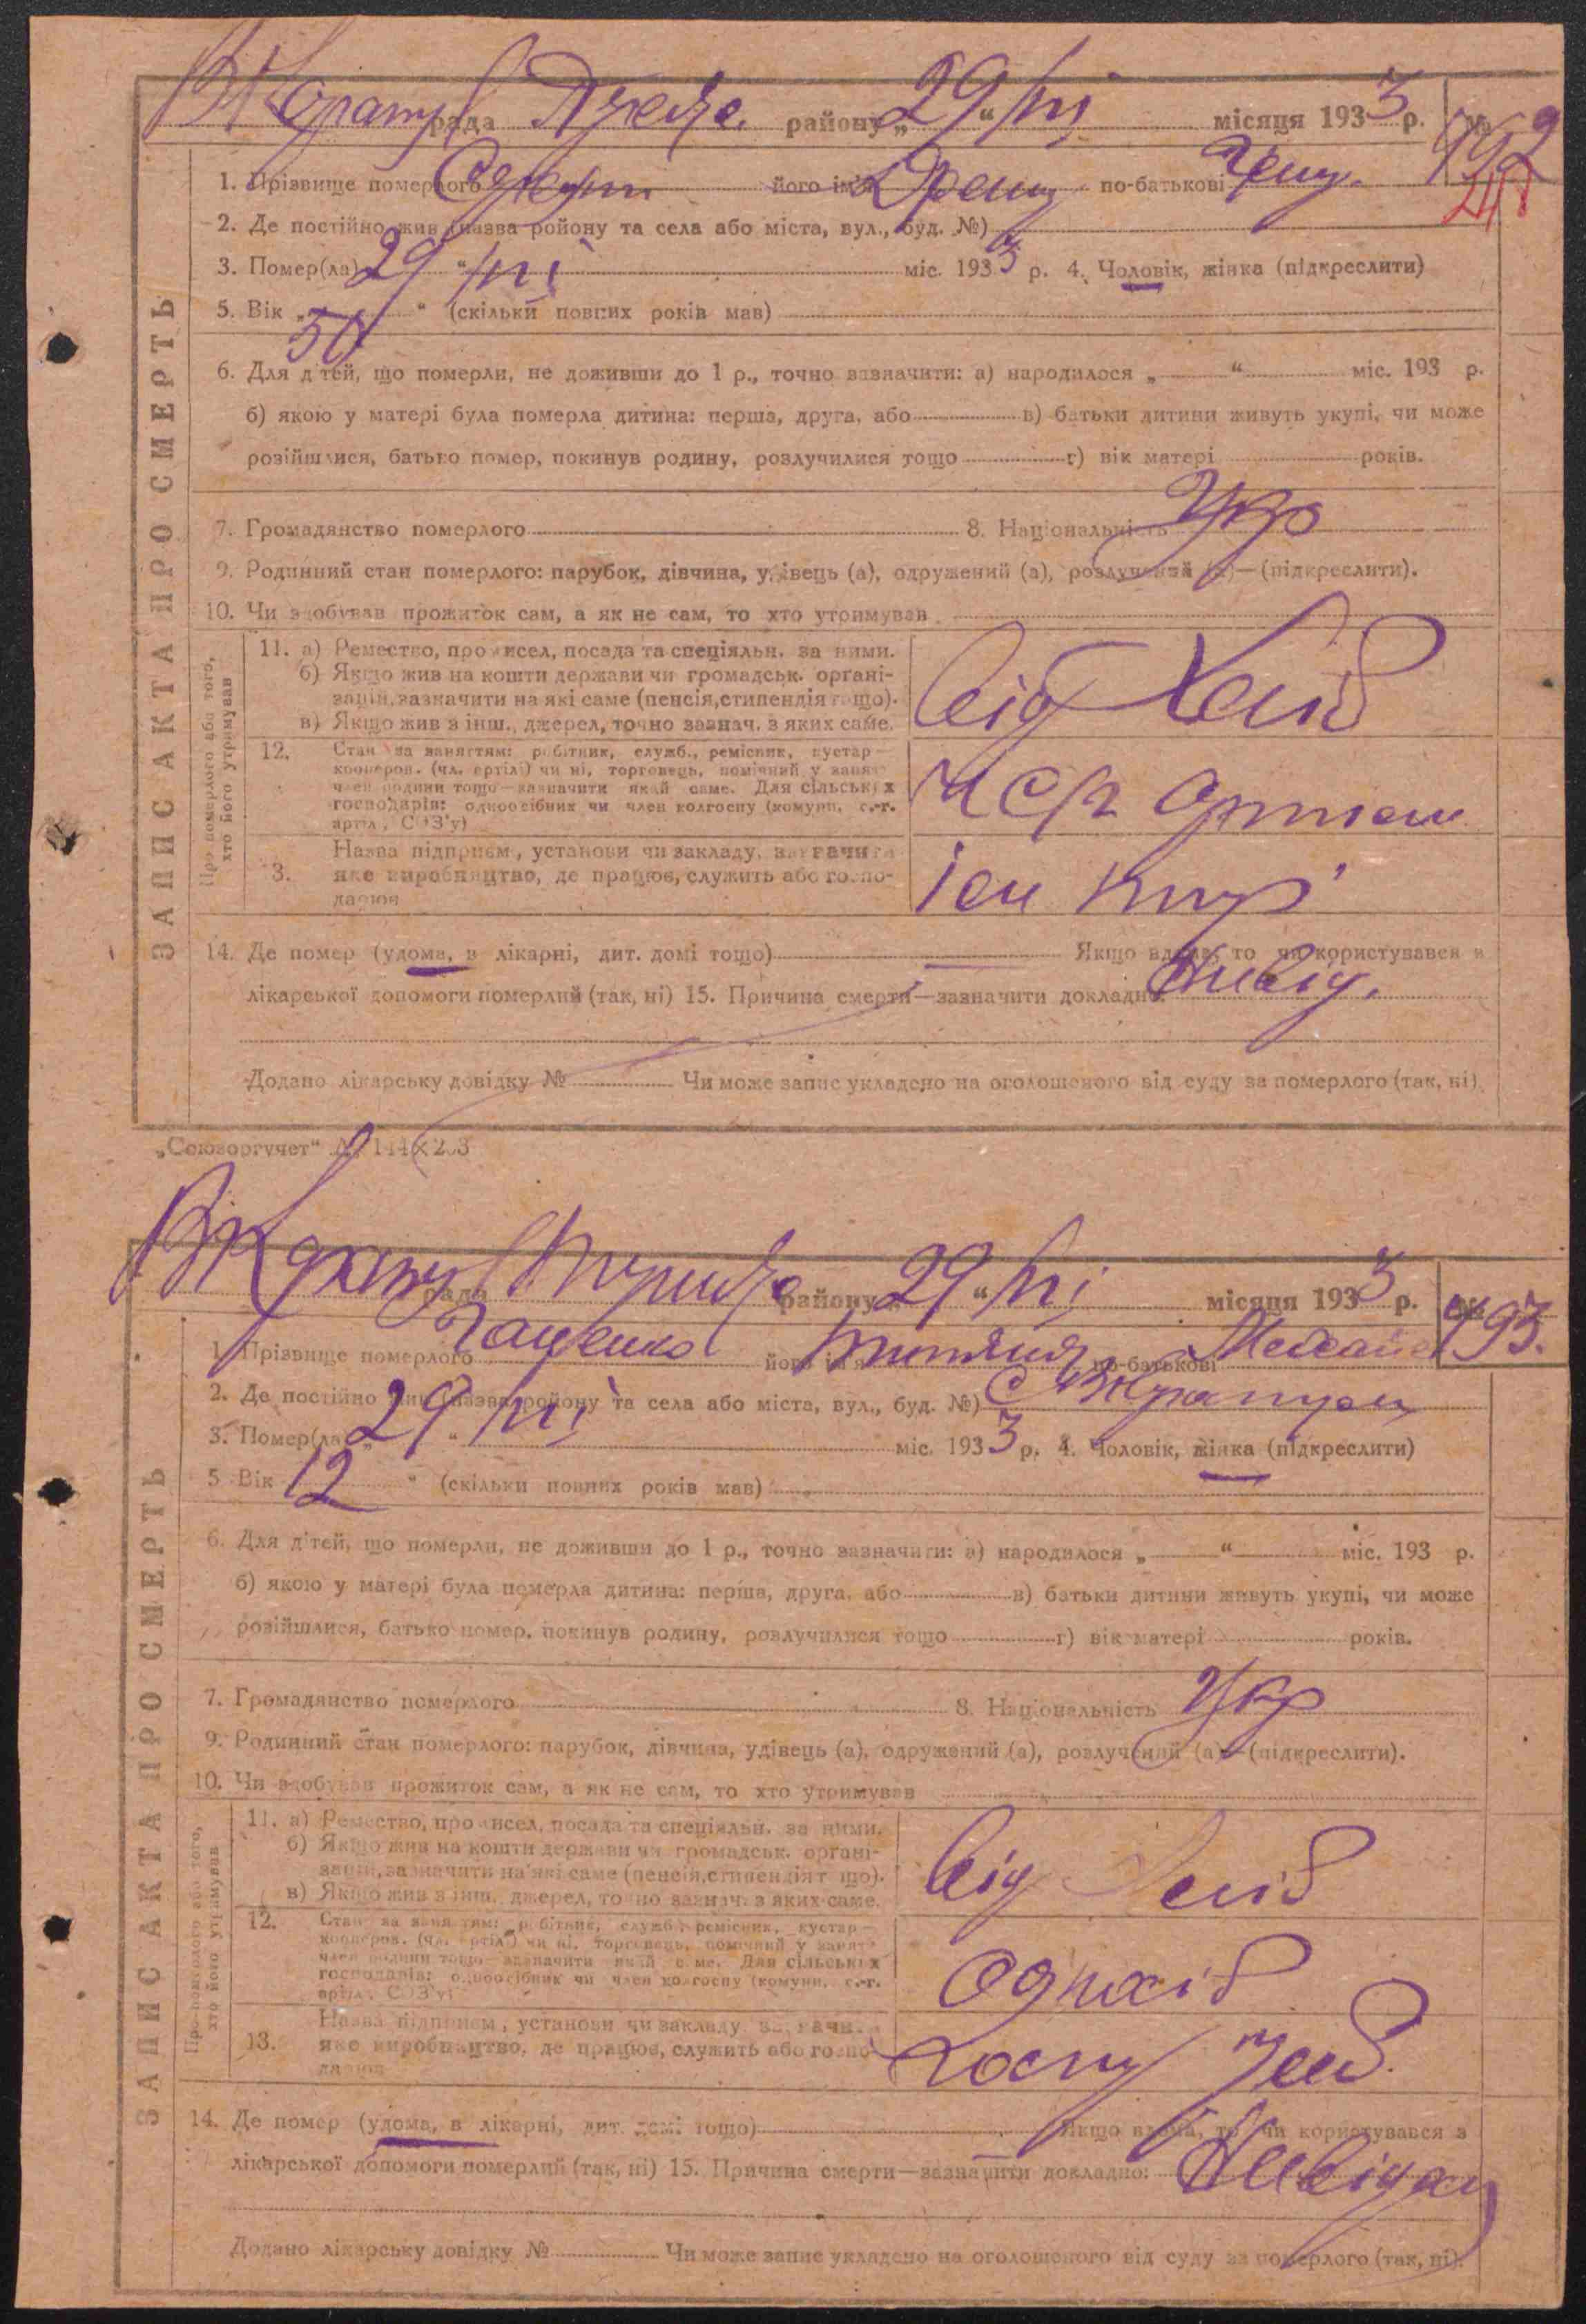 рада району „29“ VI місяця 1933 р. № 192
1. Прізвище померлого його ім'я по-батькові
2. Де постійно жив (назва ройону та села або міста, вул., буд. №)
3. Помер(ла) „29“ VI міс. 1933 р. 4. Чоловік, жінка (підкреслити)
5. Вік „50“ (скільки повних років мав)
6. Для дітей, що померли, не доживши до 1 р., точно зазначити: а) народилося „ “ міс. 193 р.
б) якою у матері була померла дитина: перша, друга, або в) батьки дитини живуть укупі, чи може
розійшлися, батько помер, покинув родину, розлучилися тощо г) вік матері років.
7. Громадянство померлого 8. Національність Укр
9. Родинний стан померлого: парубок, дівчина, удівець (а), одружений (а), розлучений (а)—(підкреслити).
10. Чи здобував прожиток сам, а як не сам, то хто утримував
ЗАПИС АКТА ПРО СМЕРТЬ
Про померлого або того, хто його утримував
11. а) Ремество, промисел, посада та спеціяльн. за ними.
б) Якщо жив на кошти держави чи громадськ. органі-
зацій, зазначити на які саме (пенсія, стипендія тощо).
в) Якщо жив з інш., джерел, точно зазнач. з яких саме.
від
12. Стан за заняттям: робітник, служб., ремісник, кустар—
кооперов. (чл. артілі) чи ні, торговець, помічний у занят
член родини тощо—зазначити який саме. Для сільських
господарів: одноосібник чи член колгоспу (комуни, с.-г.
артіл, СОЗ'у)
Назва підприєм., установи чи закладу, зазначити
13. яке виробництво, де працює, служить або госпо-
дарює
14. Де помер (удома, в лікарні, дит. домі тощо) Якщо вдома, то чи користувався з
лікарської допомоги померлий (так, ні) 15. Причина смерти—зазначити докладно:
Додано лікарську довідку № Чи може запис укладено на оголошеного від суду за померлого (так, ні).
„Союзоргучет“
рада району „29“ VI місяця 1933 р. № 193.
1. Прізвище померлого його ім'я по-батькові
2. Де постійно жив (назва ройону та села або міста, вул., буд. №) с
3. Помер(ла) „29“ VI міс. 1933 р. 4. Чоловік, жінка (підкреслити)
5 Вік 12 “ (скільки повних років мав)
6. Для дітей, що померли, не доживши до 1 р., точно зазначити: а) народилося „ “ міс. 193 р.
б) якою у матері була померла дитина: перша, друга, або в) батьки дитини живуть укупі, чи може
розійшлися, батько помер, покинув родину, розлучилися тощо г) вік матері років.
7. Громадянство померлого 8. Національність Укр
9. Родинний стан померлого: парубок, дівчина, удівець (а), одружений (а), розлучений (а)—(підкреслити).
10. Чи здобував прожиток сам, а як не сам, то хто утримував
ЗАПИС АКТА ПРО СМЕРТЬ
Про померлого або того, хто його утримував
11. а) Ремество, промисел, посада та спеціяльн. за ними.
б) Якщо жив на кошти держави чи громадськ. органі-
зацій, зазначити на які саме (пенсія, стипендія тощо).
в) Якщо жив з інш. джерел, точно зазнач. з яких саме.
від
12. Стан за заняттям: робітник, служб., ремісник, кустар—
кооперов. (чл. артілі) чи ні, торговець, помічний у занят
член родини тощо—зазначити який саме. Для сільських
господарів: одноосібник чи член колгоспу (комуни, с.-г.
артіл, СОЗ'у)
Назва підприєм., установи чи закладу, зазначити
13. яке виробництво, де працює, служить або госпо-
дарює
14. Де помер (удома, в лікарні, дит. домі тощо) Якщо вдома, то чи користувався з
лікарської допомоги померлий (так, ні) 15. Причина смерти—зазначити докладно:
Додано лікарську довідку № Чи може запис укладено на оголошеного від суду за померлого (так, ні).